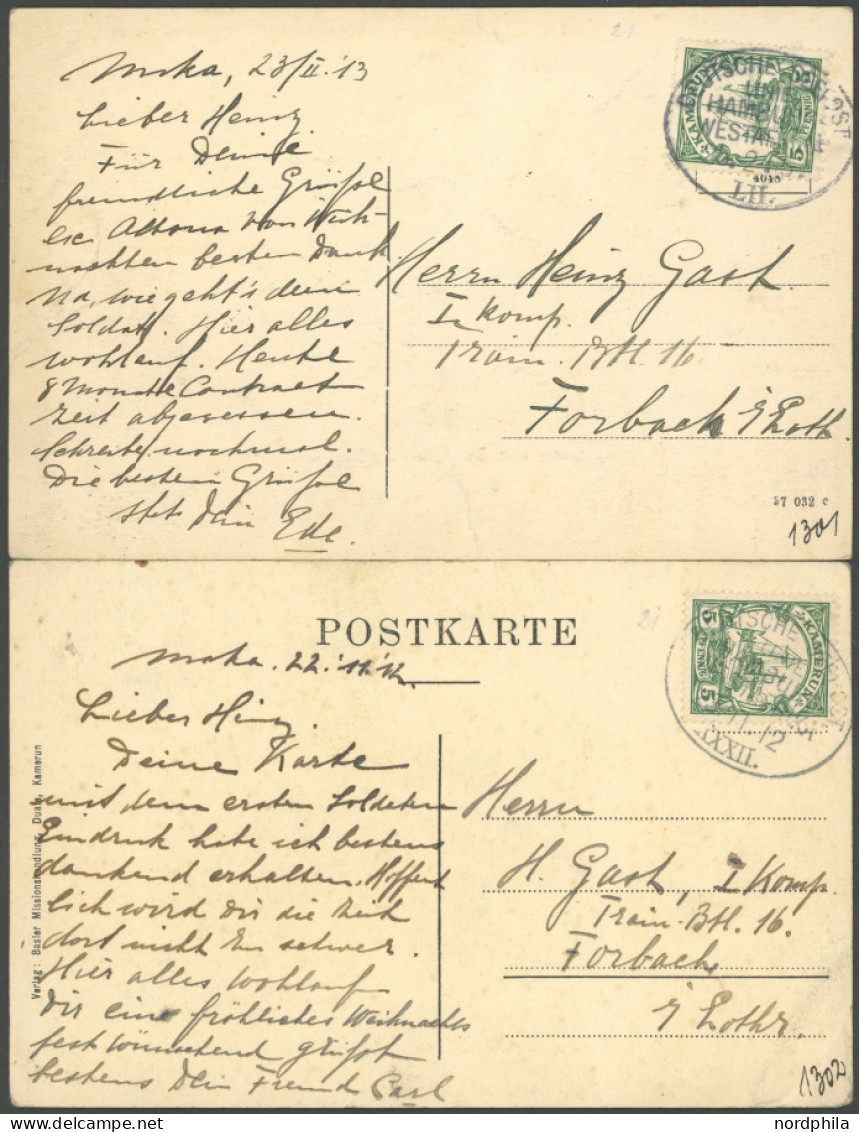 Muka, 23/II.'13
Lieber Heinz.
Für Deine
freundliche Grüße
Altona von Weih-
nachten besten Dank.
Na, wie geht's dem
Soldat. Hier alles
wohlauf. Heute
8 Monate Contract
zeit abgesessen.
Schreibe nochmal.
Die besten Grüße
stets Dein Ede.
21
KAMERUN
5 PFENNIG 5
DEUTSCHE SEEPOST
LIN
HAMBU
WESTAF
LII.
4015
Herrn Heinz Gast.
I Komp.
Train. Btl. 16
Forbach i/Loth.
37 032 c
1301
POSTKARTE
Muka. 22.'11.'12.
Lieber Heinz.
Deine Karte
mit dem ersten Soldaten
Eindruck habe ich bestens
dankend erhalten. Hoffent
lich wird Dir die Zeit
dort nicht zu schwer.
Hier alles wohlauf
Dir ein fröhliches Weihnachts
fest wünschend grüßt
bestens Dein Freund Carl
Verlag: Basler Missionshandlung, Duala, Kamerun
21
KAMERUN
5 PFENNIG 5
DEUTSCHE SEEPOST
11 12
XXXII.
Herrn
H. Gast, I Komp.
Train-Btl. 16.
Forbach
i/Lothr.
1302
www.delcampe.net
nordphila